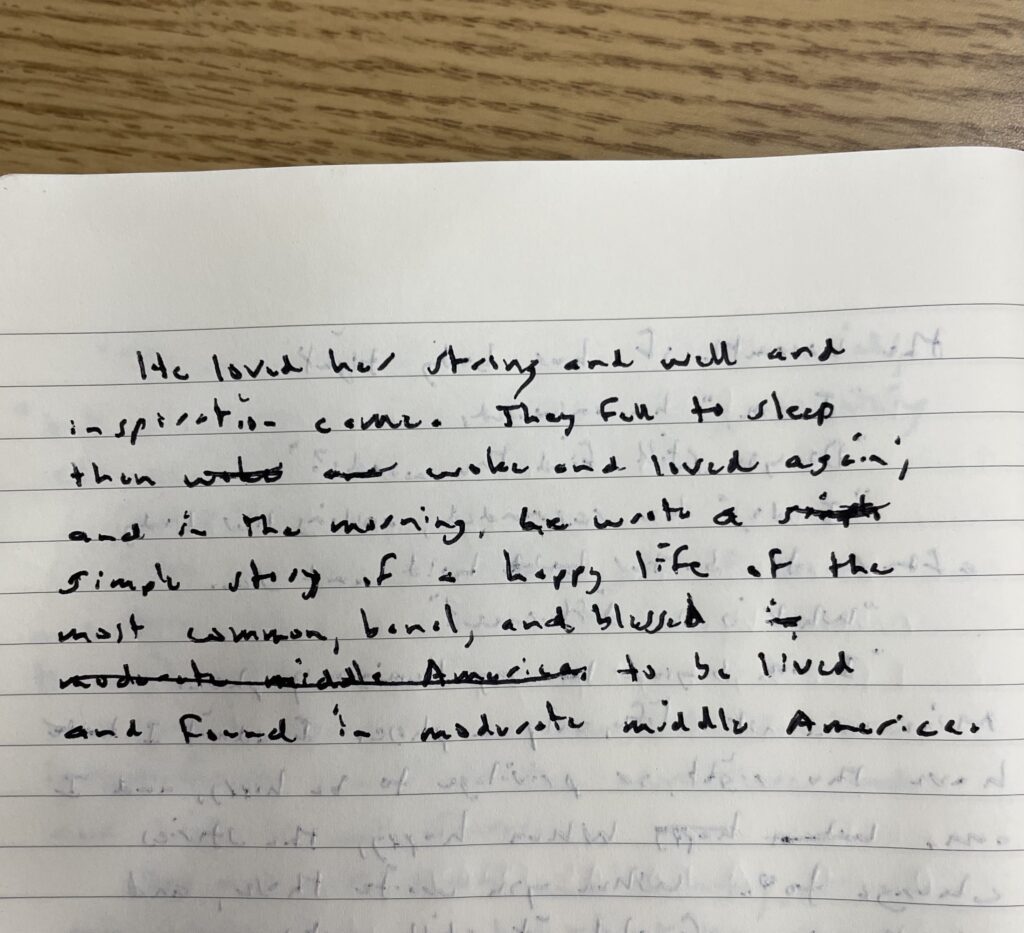 He loved her string and well and
inspiration came. They fell to sleep
then woke and woke and loved again;
and in the morning, he wrote a simple
simple story of a happy life of the
most common, banal, and blessed in
moderate middle America. to be lived
and found in moderate middle America.